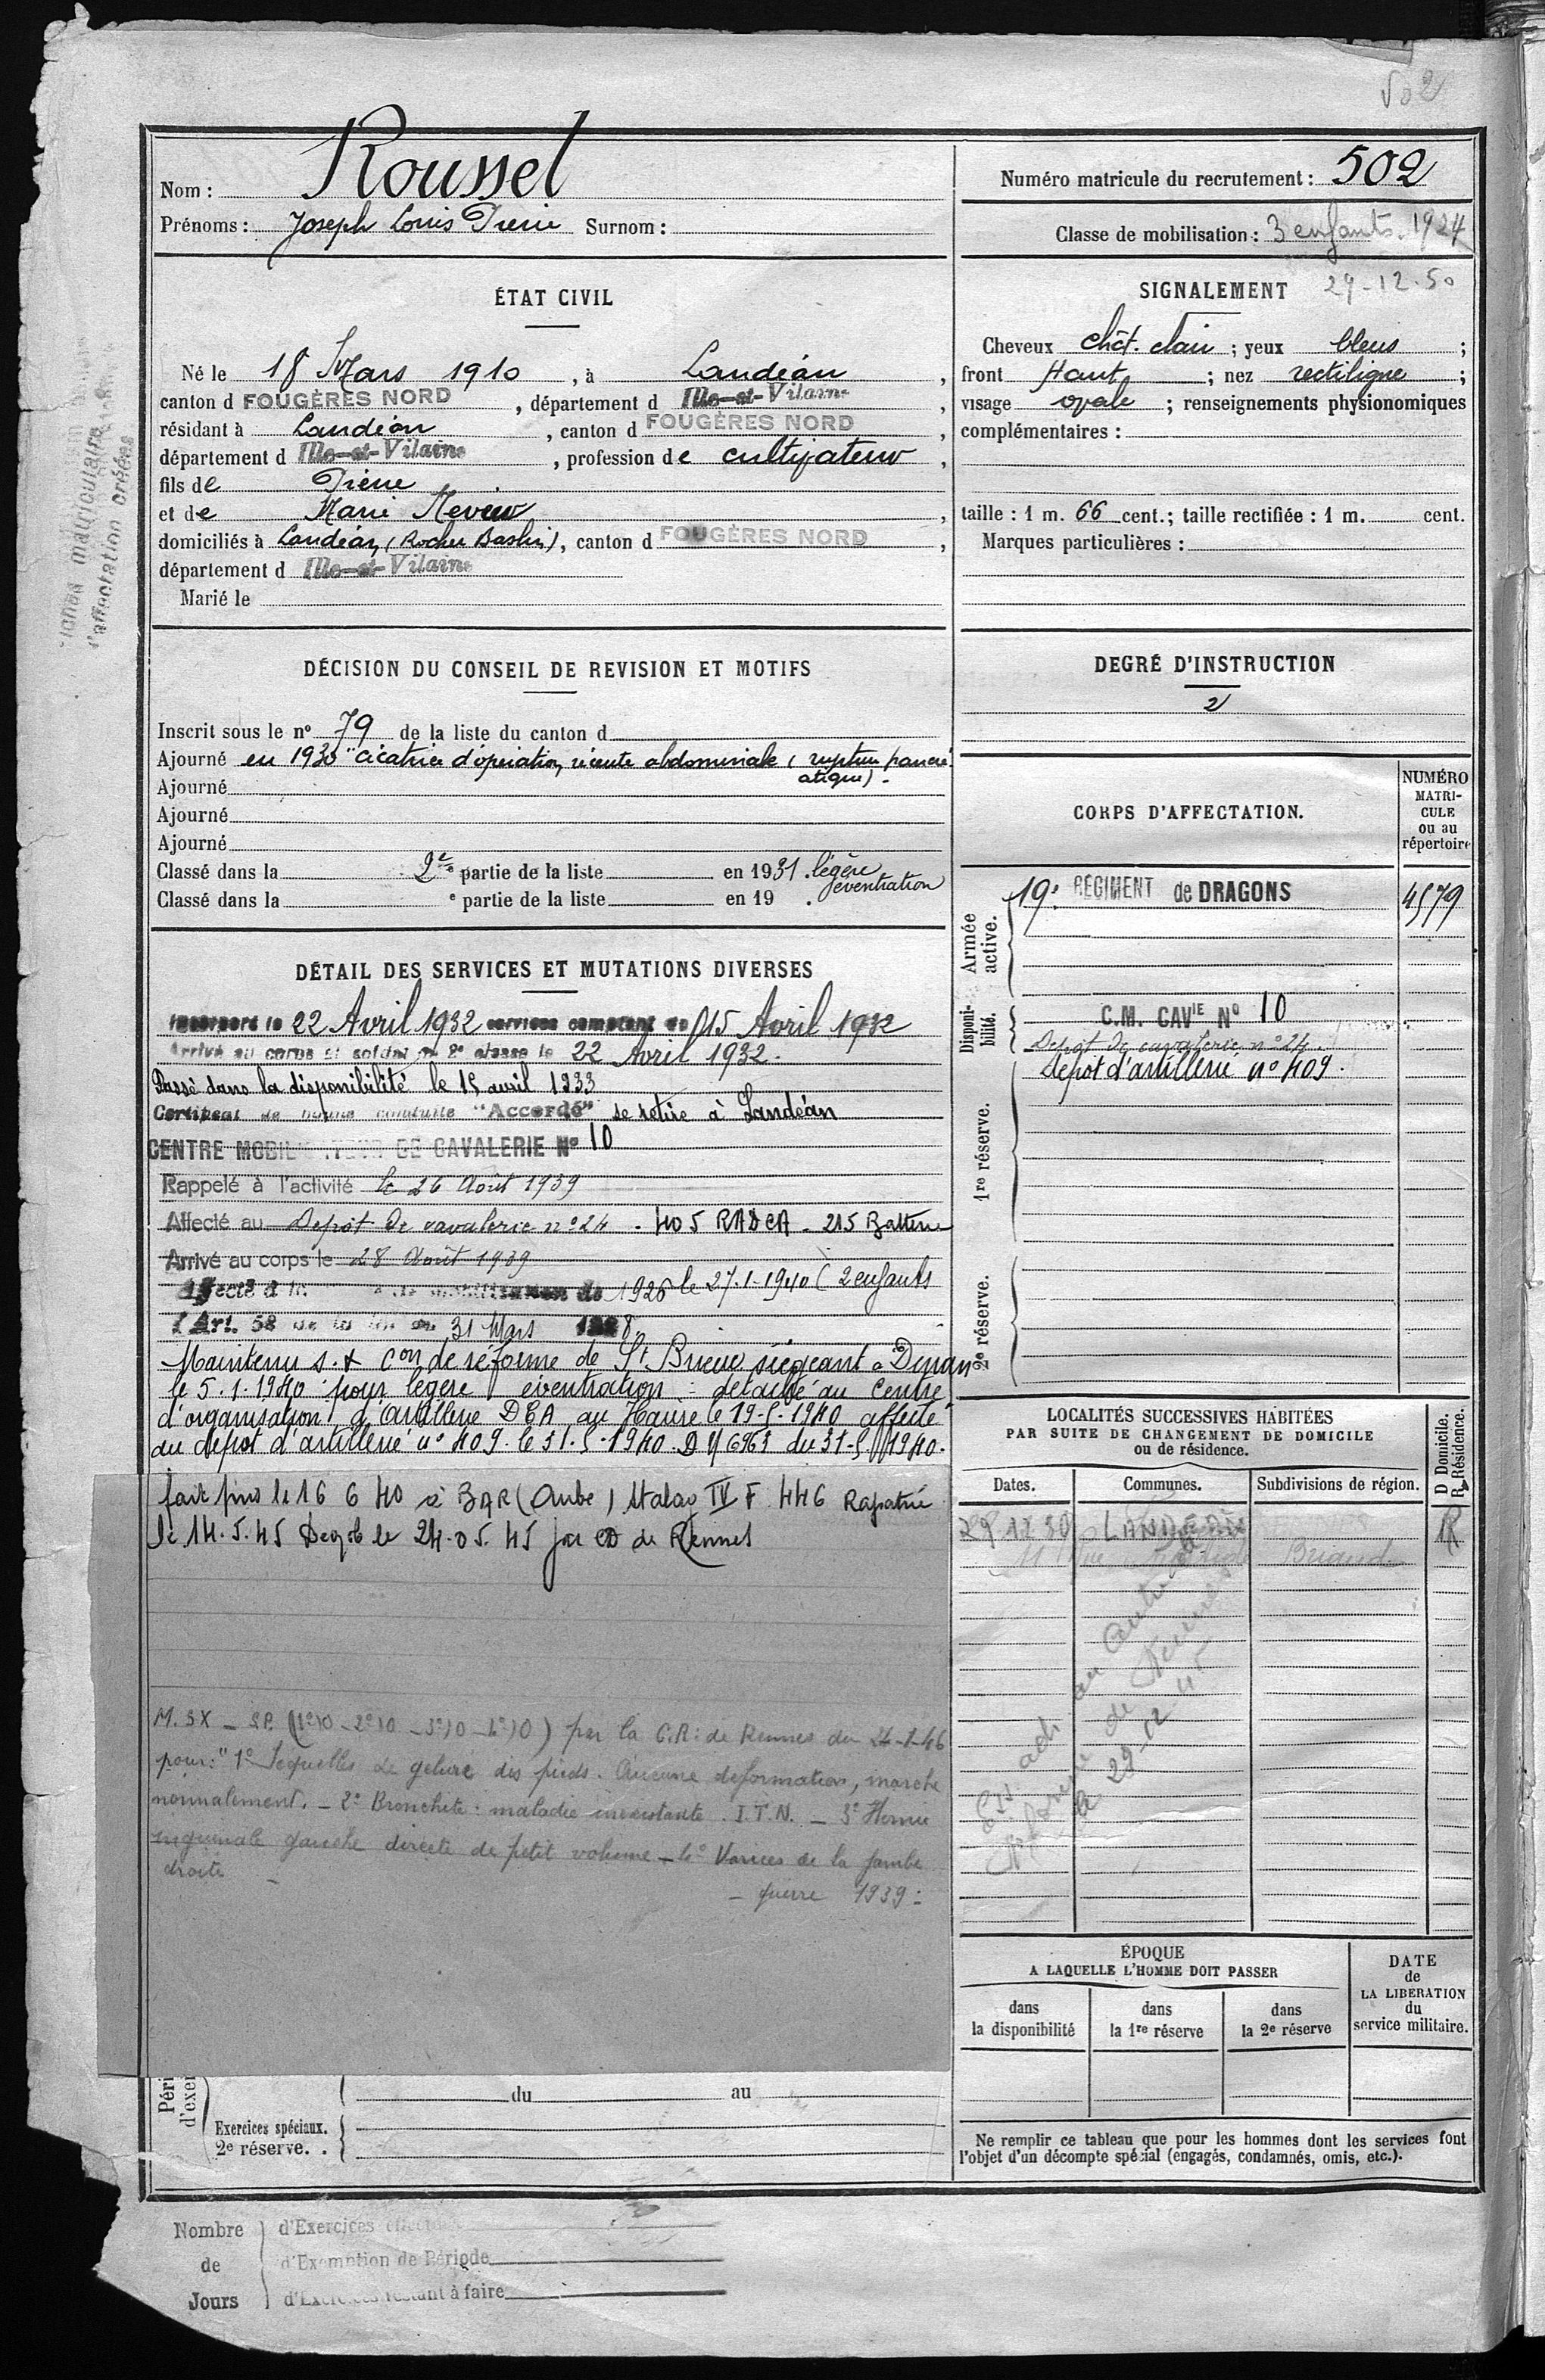 502
Nom : Roussel
Prénoms : Joseph Louis Pierre Surnom :
Numéro matricule du recrutement : 502
Classe de mobilisation : 3 enfants. 1924
29-12-50
ÉTAT CIVIL
Né le 18 Mars 1910, à Landéan,
canton d FOUGÈRES NORD, département d Ille-et-Vilaine,
résidant à Landéan, canton d FOUGÈRES NORD,
département d Ille-et-Vilaine, profession de cultivateur,
fils de Pierre
et de Marie
domiciliés à Landéan, (Rocher), canton d FOUGÈRES NORD,
département d Ille-et-Vilaine
Marié le
SIGNALEMENT
Cheveux chât. clair ; yeux bleus ;
front Haut ; nez rectiligne ;
visage ovale ; renseignements physionomiques
complémentaires :
taille : 1 m. 66 cent. ; taille rectifiée : 1 m. cent.
Marques particulières :
DÉCISION DU CONSEIL DE REVISION ET MOTIFS
Inscrit sous le nº 79 de la liste du canton d
Ajourné en 1930 "cicatrice d'opération récente abdominale (rupture pancré
atique) -
Ajourné
Ajourné
Ajourné
Classé dans la 2e partie de la liste en 1931. légère
éventration
Classé dans la e partie de la liste en 19 .
DEGRÉ D'INSTRUCTION
2
CORPS D'AFFECTATION.
NUMÉRO
MATRI-
CULE
ou au
répertoire
Armée
active.
19e RÉGIMENT de DRAGONS 4579
Disponi-
bilité.
C.M. CAVIE Nº 10
Dépot de cavalerie nº 24.
dépot d'artillerie nº 409.
1re réserve.
2e réserve.
DÉTAIL DES SERVICES ET MUTATIONS DIVERSES
Incorporé le 22 Avril 1932 services comptant du 15 Avril 1932
Arrivé au corps et soldat de 2e classe le 22 Avril 1932.
Passé dans la disponibilité le 15 avril 1933
Certificat de bonne conduite "Accordé" se retire à Landéan
CENTRE MOBILISATEUR DE CAVALERIE Nº 10
Rappelé à l'activité le 26 Août 1939
Affecté au Dépôt de cavalerie nº 24 - 405 RADCA - 215 Batterie
Arrivé au corps le 28 Août 1939
Affecté à la de mobilisation de 1926 le 27-1-1940 (2 enfants
(Art. 58 de la loi du 31 Mars 1928
Maintenu s. x con de réforme de St Brieuc siégeant à Dinan
le 5.1.1940 pour légère éventration : détaché au Centre
d'organisation d'artillerie DCA au Havre le 19-5-1940 affecté
au dépot d'artillerie nº 409. le 31-5-1940. 6963 du 31-5-1940.
fait pris le 16 6 40 à BAR (Aube) Stalag IV F 446 Rapatrié
le 14.5.45 Demob le 24-05.45 par CD de Rennes
M. SX - S.P. (1º)0 - 2º)0 - 3º)0 - 4º)0) par la C.R. de Rennes du 24-1-46
pour : "1º Sequelles de gelure des pieds. Aucune déformation, marche
normalement. - 2º Bronchite : maladie inexistante. I.T.N. - 3º Hernie
inguinale gauche directe de petit volume - 4º Varices de la jambe
droite -
- guerre 1939 :
LOCALITÉS SUCCESSIVES HABITÉES
PAR SUITE DE CHANGEMENT DE DOMICILE
ou de résidence.
D Domicile.
R Résidence.
Dates. Communes. Subdivisions de région.
LANDEAN R
Briand
au Centre de
Réforme de Rennes
le 29-12 45
ÉPOQUE
A LAQUELLE L'HOMME DOIT PASSER
dans
la disponibilité
dans
la 1re réserve
dans
la 2e réserve
DATE
de
LA LIBÉRATION
du
service militaire.
Ne remplir ce tableau que pour les hommes dont les services font
l'objet d'un décompte spécial (engagés, condamnés, omis, etc.).
Péri
d'exer
du au
Exercices spéciaux.
2e réserve. .
Nombre
de
Jours
d'Exercices
d'Exemption de Période
d'Exercices restant à faire
matriculaire
l'affectation créées